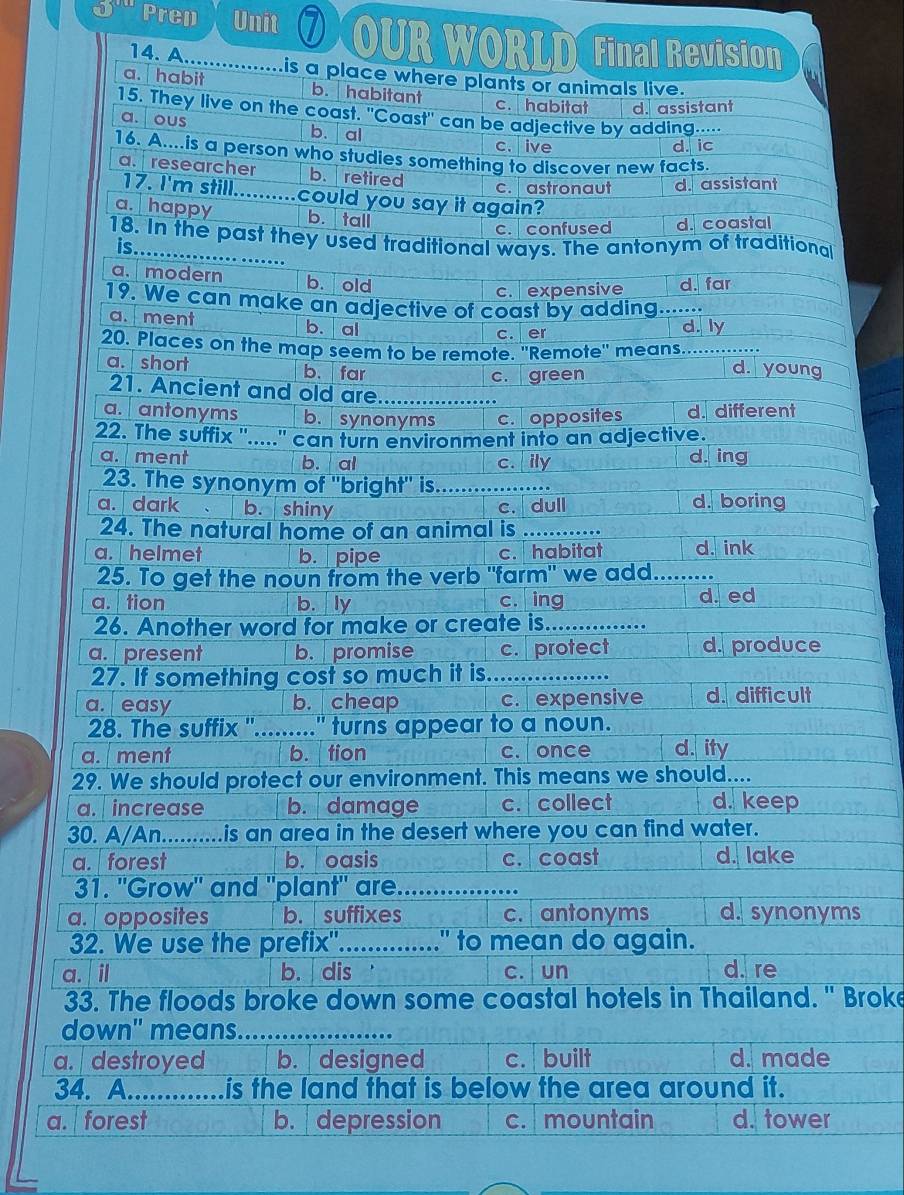 3rd Prep Unit 7 OUR WORLD Final Revision
14. A................is a place where plants or animals live.
a. habit b. habitant c. habitat d. assistant
15. They live on the coast. "Coast" can be adjective by adding.....
a. ous b. al c. ive d. ic
16. A....is a person who studies something to discover new facts.
a. researcher b. retired c. astronaut d. assistant
17. I'm still...........could you say it again?
a. happy b. tall c. confused d. coastal
18. In the past they used traditional ways. The antonym of traditional
is........................
a. modern b. old c. expensive d. far
19. We can make an adjective of coast by adding.......
a. ment b. al c. er d. ly
20. Places on the map seem to be remote. "Remote" means..............
a. short b. far c. green d. young
21. Ancient and old are....................
a. antonyms b. synonyms c. opposites d. different
22. The suffix "....." can turn environment into an adjective.
a. ment b. al c. ily d. ing
23. The synonym of "bright" is...................
a. dark b. shiny c. dull d. boring
24. The natural home of an animal is .............
a. helmet b. pipe c. habitat d. ink
25. To get the noun from the verb "farm" we add..........
a. tion b. ly c. ing d. ed
26. Another word for make or create is.................
a. present b. promise c. protect d. produce
27. If something cost so much it is....................
a. easy b. cheap c. expensive d. difficult
28. The suffix ".........." turns appear to a noun.
a. ment b. tion c. once d. ity
29. We should protect our environment. This means we should....
a. increase b. damage c. collect d. keep
30. A/An..........is an area in the desert where you can find water.
a. forest b. oasis c. coast d. lake
31. "Grow" and "plant" are.................
a. opposites b. suffixes c. antonyms d. synonyms
32. We use the prefix".............." to mean do again.
a. il b. dis c. un d. re
33. The floods broke down some coastal hotels in Thailand. " Broke
down" means.....................
a. destroyed b. designed c. built d. made
34. A.............is the land that is below the area around it.
a. forest b. depression c. mountain d. tower